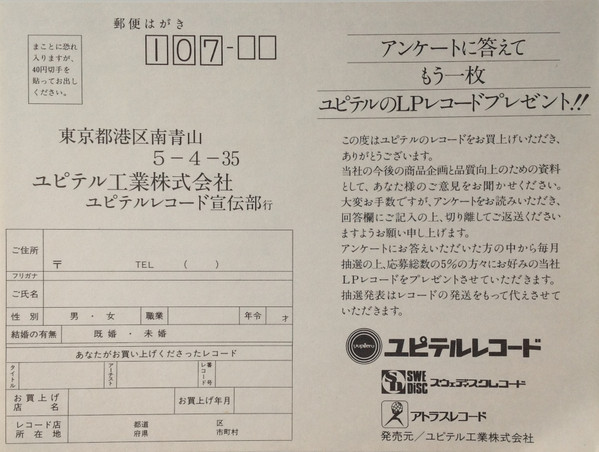 郵便はがき
まことに恐れ
入りますが、
40円切手を
貼ってお出し
ください。
107-
東京都港区南青山
5-4-35
ユピテル工業株式会社
ユピテルレコード宣伝部行
ご住所
〒 TEL ( )
フリガナ
ご氏名
性別 男・女 職業 年令 才
結婚の有無 既婚・未婚
あなたがお買い上げくださったレコード
タイトル アーチスト レコード番号
お買上げ店名 お買上げ年月
レコード店所在地 都道府県 区市町村
アンケートに答えて
もう一枚
ユピテルのLPレコードプレゼント!!
この度はユピテルのレコードをお買上げいただき、
ありがとうございます。
当社の今後の商品企画と品質向上のための資料
として、あなた様のご意見をお聞かせください。
大変お手数ですが、アンケートをお読みいただき、
回答欄にご記入の上、切り離してご返送ください
ますようお願い申し上げます。
アンケートにお答えいただいた方の中から毎月
抽選の上、応募総数の5%の方々にお好みの当社
LPレコードをプレゼントさせていただきます。
抽選発表はレコードの発送をもって代えさせて
いただきます。
yupiteru
ユピテルレコード
SWE
DISC
スウェディスクレコード
アトラスレコード
発売元/ユピテル工業株式会社